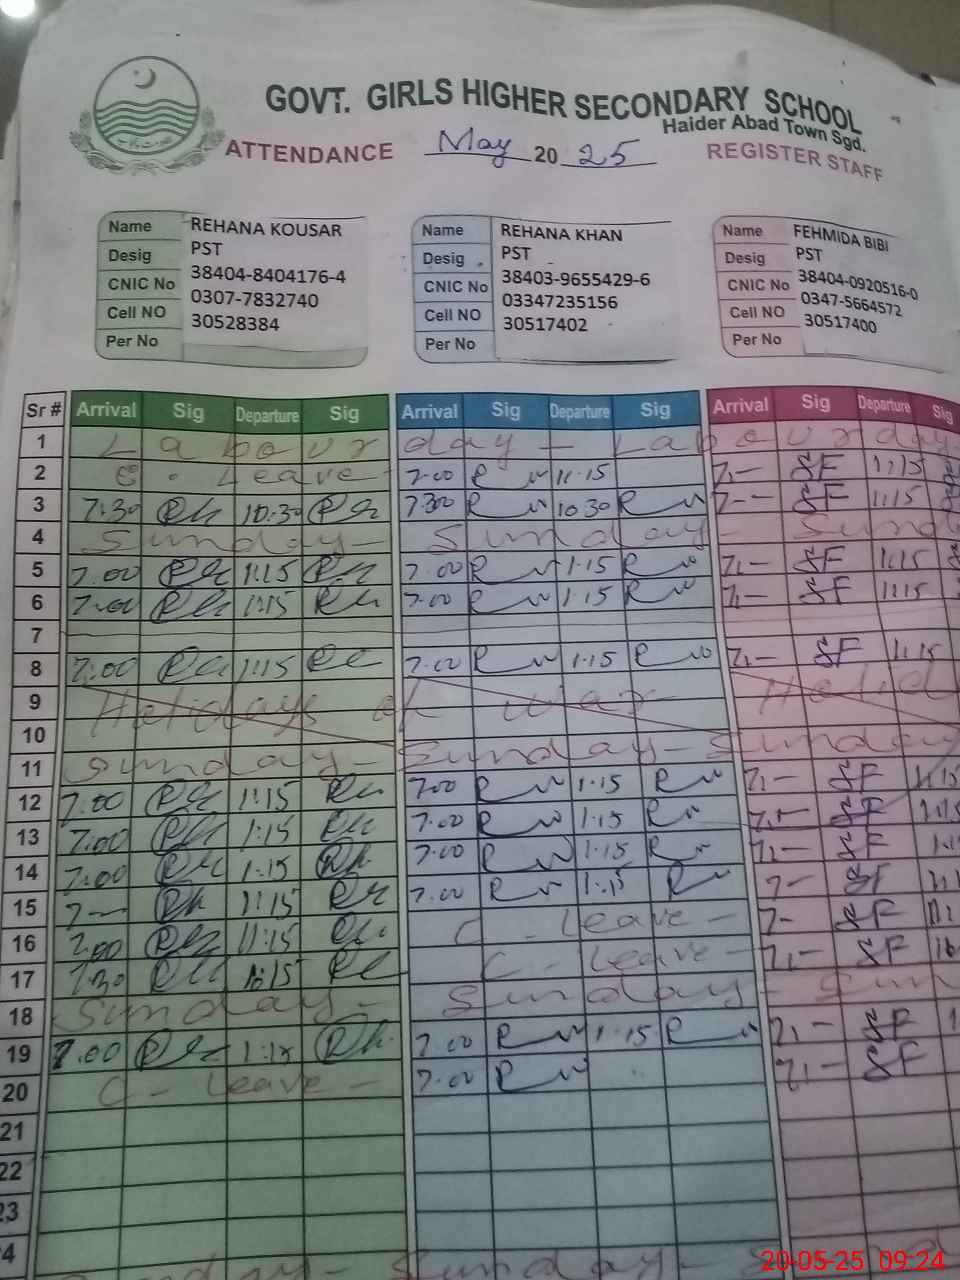 GOVT. GIRLS HIGHER SECONDARY SCHOOL
Haider Abad Town Sgd.
ATTENDANCE May 20 25 REGISTER STAFF
Name REHANA KOUSAR Name REHANA KHAN Name FEHMIDA BIBI
Desig PST Desig PST Desig PST
CNIC No 38404-8404176-4 CNIC No 38403-9655429-6 CNIC No 38404-0920516-0
Cell NO 0307-7832740 Cell NO 03347235156 Cell NO 0347-5664572
Per No 30528384 Per No 30517402 Per No 30517400
Sr # Arrival Sig Departure Sig Arrival Sig Departure Sig Arrival Sig Departure Sig
1 Labour day - Labour day
2 Leave 7.00 R 11.15 7,- SF 11:15
3 7:30 Rh 10:30 Rh 7.30 R 10 30 R 7-- SF 11:15
4 Sunday - Sunday - Sund
5 7.00 Rh 1:15 Rh 7.00 R 1.15 R 7,- SF 1:15
6 7.00 Rh 1:15 Rh 7.00 R 1.15 R 7,- SF 1:15
7
8 7:00 Rh 1:15 Rh 7.00 R 1.15 R 7,- SF 1:15
9 Holidays of war Holid
10
11 Sunday - Sunday - Sunday
12 7.00 Rh 1:15 Rh 7.00 R 1.15 R 7,- SF 1:15
13 7.00 Rh 1:15 Rh 7.00 R 1.15 R 7,- SF 1:15
14 7.00 Rh 1:15 Rh 7.00 R 1.15 R 7,- SF
15 7-- Rh 1:15 Rh 7.00 R 1.15 R 7- SF
16 7.00 Rh 11:15 Rh C - Leave - 7- SF
17 7.30 Rh 10:15 Rh C - Leave - 7,- SF
18 Sunday - Sunday - Sun
19 7.00 Rh 1:15 Rh 7.00 R 1.15 R 7,- SF
20 C - Leave - 7.00 R 7,- SF
21
22
23
Sunday - Sunday - S
20-05-25 09:24